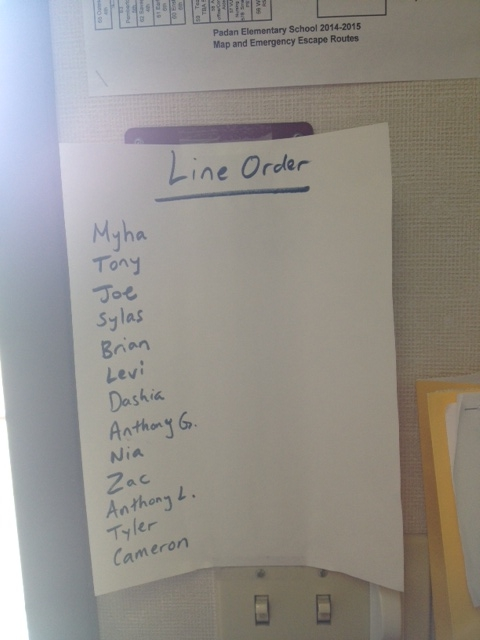 Padan Elementary School 2014-2015
Map and Emergency Escape Routes
Line Order
Myha
Tony
Joe
Sylas
Brian
Levi
Dashia
Anthony G.
Nia
Zac
Anthony L.
Tyler
Cameron